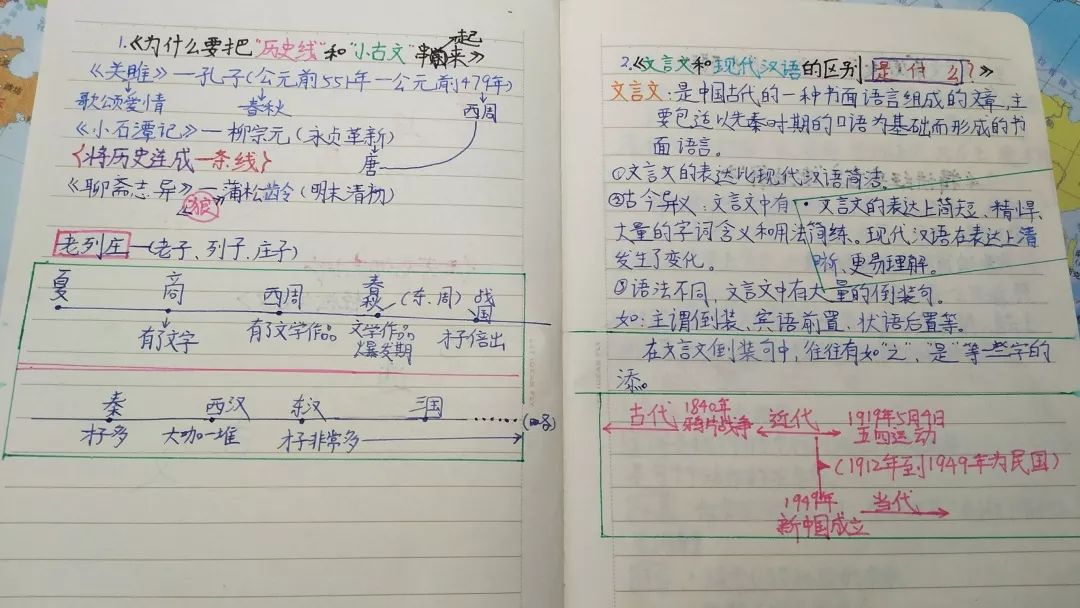 1.《为什么要把"历史线"和"小古文"串起来》
《关雎》—孔子(公元前551年—公元前479年)
歌颂爱情 春秋 西周
《小石潭记》—柳宗元(永贞革新)
{将历史连成一条线} 唐
《聊斋志异》—蒲松龄(明末清初)
《狼》
老列庄—(老子、列子、庄子)
夏 商 西周 春秋(东.周)战国
有了文字 有了文学作品 文学作品爆发期 才子倍出
秦 西汉 东汉 三国 ……(略)
才子多 大咖一堆 才子非常多
2.《文言文和现代汉语的区别是什么?》
文言文:是中国古代的一种书面语言组成的文章,主
要包适以先秦时期的口语为基础而形成的书
面语言。
①文言文的表达比现代汉语简洁。
②古今异义:文言文中有
大量的字词含义和用法
发生了变化。
•文言文的表达上简短、精悍、
简练。现代汉语在表达上清
晰、更易理解。
③语法不同,文言文中有大量的倒装句。
如:主谓倒装、宾语前置、状语后置等。
在文言文倒装句中,往往有如"之","是"等一些字的
添。
古代 1840年鸦片战争 近代 1919年5月4日
五四运动
(1912年到1949年为民国)
1949年 当代
新中国成立